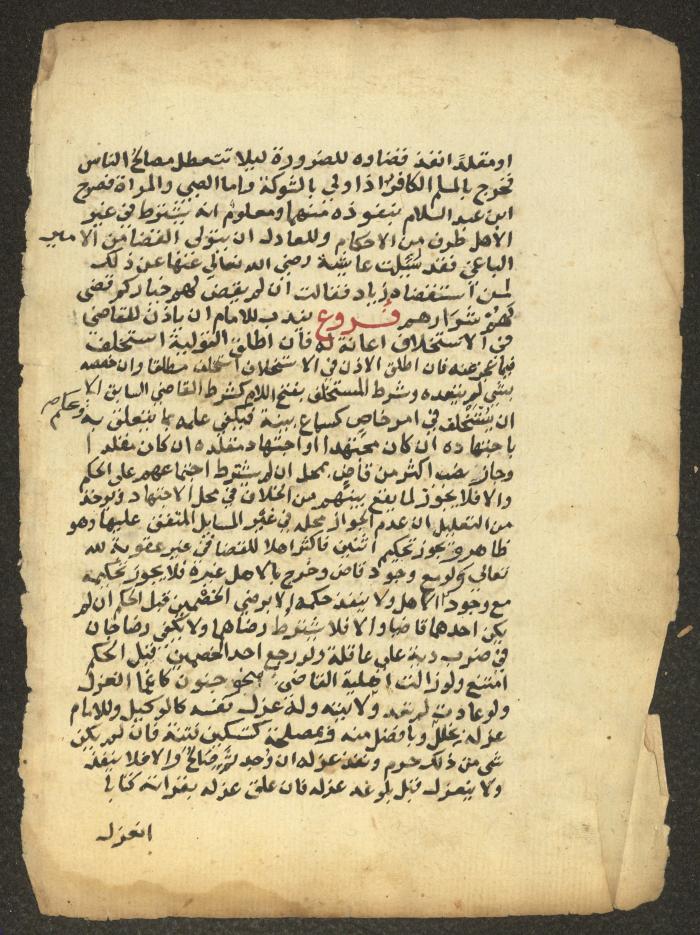 او مقلدا نفذ قضاوه للضرورة ليلا تتعطل مصالح الناس
فخرج بالمسلم الكافر اذا ولي بالشوكة واما الصبي والمراة فصرح
ابن عبد السلام بنفوذه منهما ومعلوم انه يشترط في غير
الاهل طرف من الاحكام وللعادل ان يتولى القضا من الامير
الباغي فقد سيلت عايشة رضي الله تعالى عنها عن ذلك
لمن استقضاه زياد فقالت ان لم يقض لهم خيارهم قضى
لهم شرارهم فروع يندب للامام ان ياذن للقاضي
في الاستخلاف اعانة له فان اطلق التولية استخلف
فيما عجز عنه فان اطلق الاذن في الاستخلاف استخلف مطلقا وان خصصه
بشي لم يتعده وشرط المستخلف بفتح اللام كشرط القاضي السابق الا
ان يستخلف في امر خاص كسماع بينة فيكفي علمه بما يتعلق به ويحكم
باجتهاده ان كان مجتهدا او اجتهاد مقلده ان كان مقلدا
وجاز نصب اكثر من قاض بمحل ان لم يشترط اجتماعهم على الحكم
والا فلا يجوز لما يقع بينهم من الخلاف في محل الاجتهاد ويوخذ
من التعليل ان عدم الجواز محله في غير المسايل المتفق عليها وهو
ظاهر ويجوز تحكيم اثنين فاكثر اهلا للقضا في غير عقوبة لله
تعالى ولو مع وجود قاض وخرج بالاهل غيره فلا يجوز تحكيمه
مع وجود الاهل ولا ينفذ حكمه الا برضى الخصمين قبل الحكم ان لم
يكن احدهما قاضيا والا فلا يشترط رضاهما ولا يكفي رضا جان
في ضرب دية على عاقلة ولو رجع احد الخصمين قبل الحكم
امتنع ولو زالت اهلية القاضي بنحو جنون كاغما انعزل
ولو عادت لم تعد ولايته وله عزل نفسه كالوكيل وللامام
عزله بخلل وبافضل منه وبمصلحة كتسكين فتنة فان لم يكن
شي من ذلك حرم ونفذ عزله ان وجد ثم صالح والا فلا ينفذ
ولا ينعزل قبل بلوغه عزله فان علق عزله بقراته كتابا
انعزل